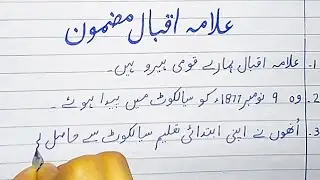 علامہ اقبال مضمون
1۔ علامہ اقبال ہمارے قومی ہیرو ہیں۔
2۔ وہ ۹ نومبر 1877ء کو سیالکوٹ میں پیدا ہوئے۔
3۔ اُنھوں نے اپنی ابتدائی تعلیم سیالکوٹ سے حاصل